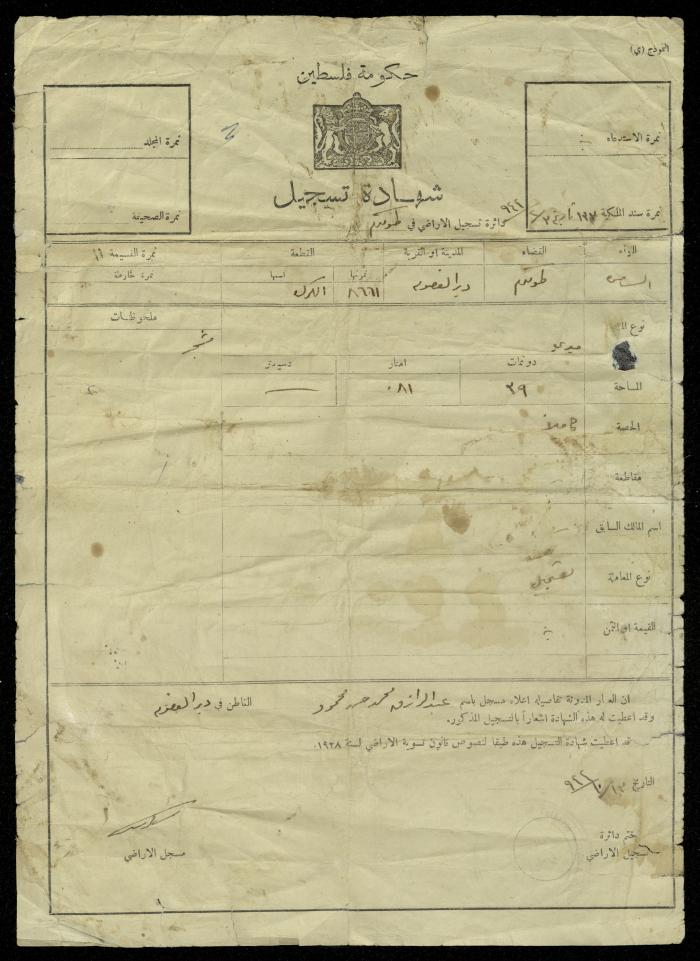 النموذج (ي)
حكومة فلسطين
نمرة الاستدعاء
نمرة المجلد
شهادة تسجيل
نمرة سند الملكية
نمرة الصحيفة
دائرة تسجيل الاراضي في طولكرم
القضاء
المدينة او القرية
القطعة
نمرة القسيمة
طولكرم
دير الغصون
نمرتها
٨٦٦١
اسمها
نمرة الخارطة
نوع
ميري
ملحوظات
مشجر
دونمات
امتار
دسيمتر
المساحة
٣٩
٠٨١
الحصة
كاملا
مقاطعة
اسم المالك السابق
نوع المعاملة
تسجيل
القيمة او الثمن
ان العقار المدونة تفاصيله اعلاه مسجل باسم عبد الرازق محمد حسن محمود القاطن في دير الغصون
وقد اعطيت له هذه الشهادة اشعاراً بالتسجيل المذكور.
قد اعطيت شهادة التسجيل هذه طبقا لنصوص قانون تسوية الاراضي لسنة ١٩٢٨.
التاريخ
ختم دائرة
تسجيل الاراضي
مسجل الاراضي